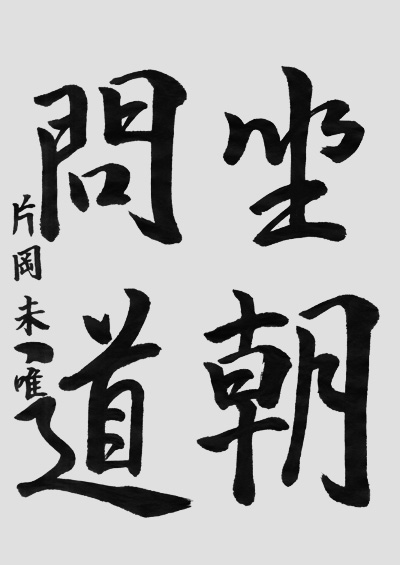 坐朝
問道
片岡未唯